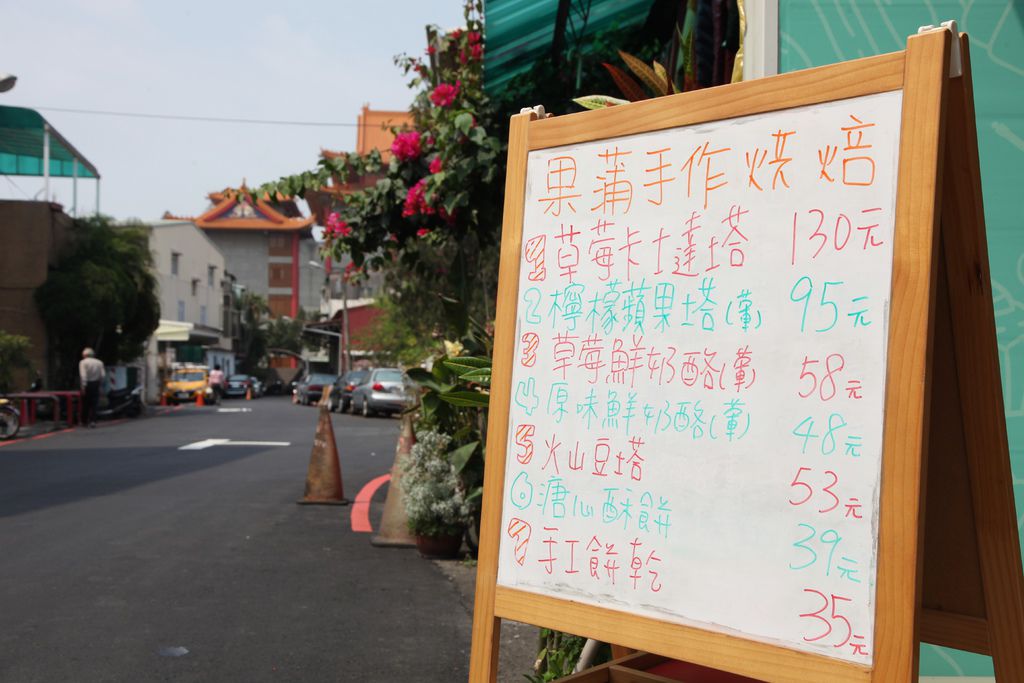 果蒲手作烧焙
1 草莓卡士達塔 130元
2 檸檬蘋果塔(葷) 95元
3 草莓鮮奶酪(葷) 58元
4 原味鮮奶酪(葷) 48元
5 火山豆塔 53元
6 溏心酥餅 39元
7 手工餅乾 35元